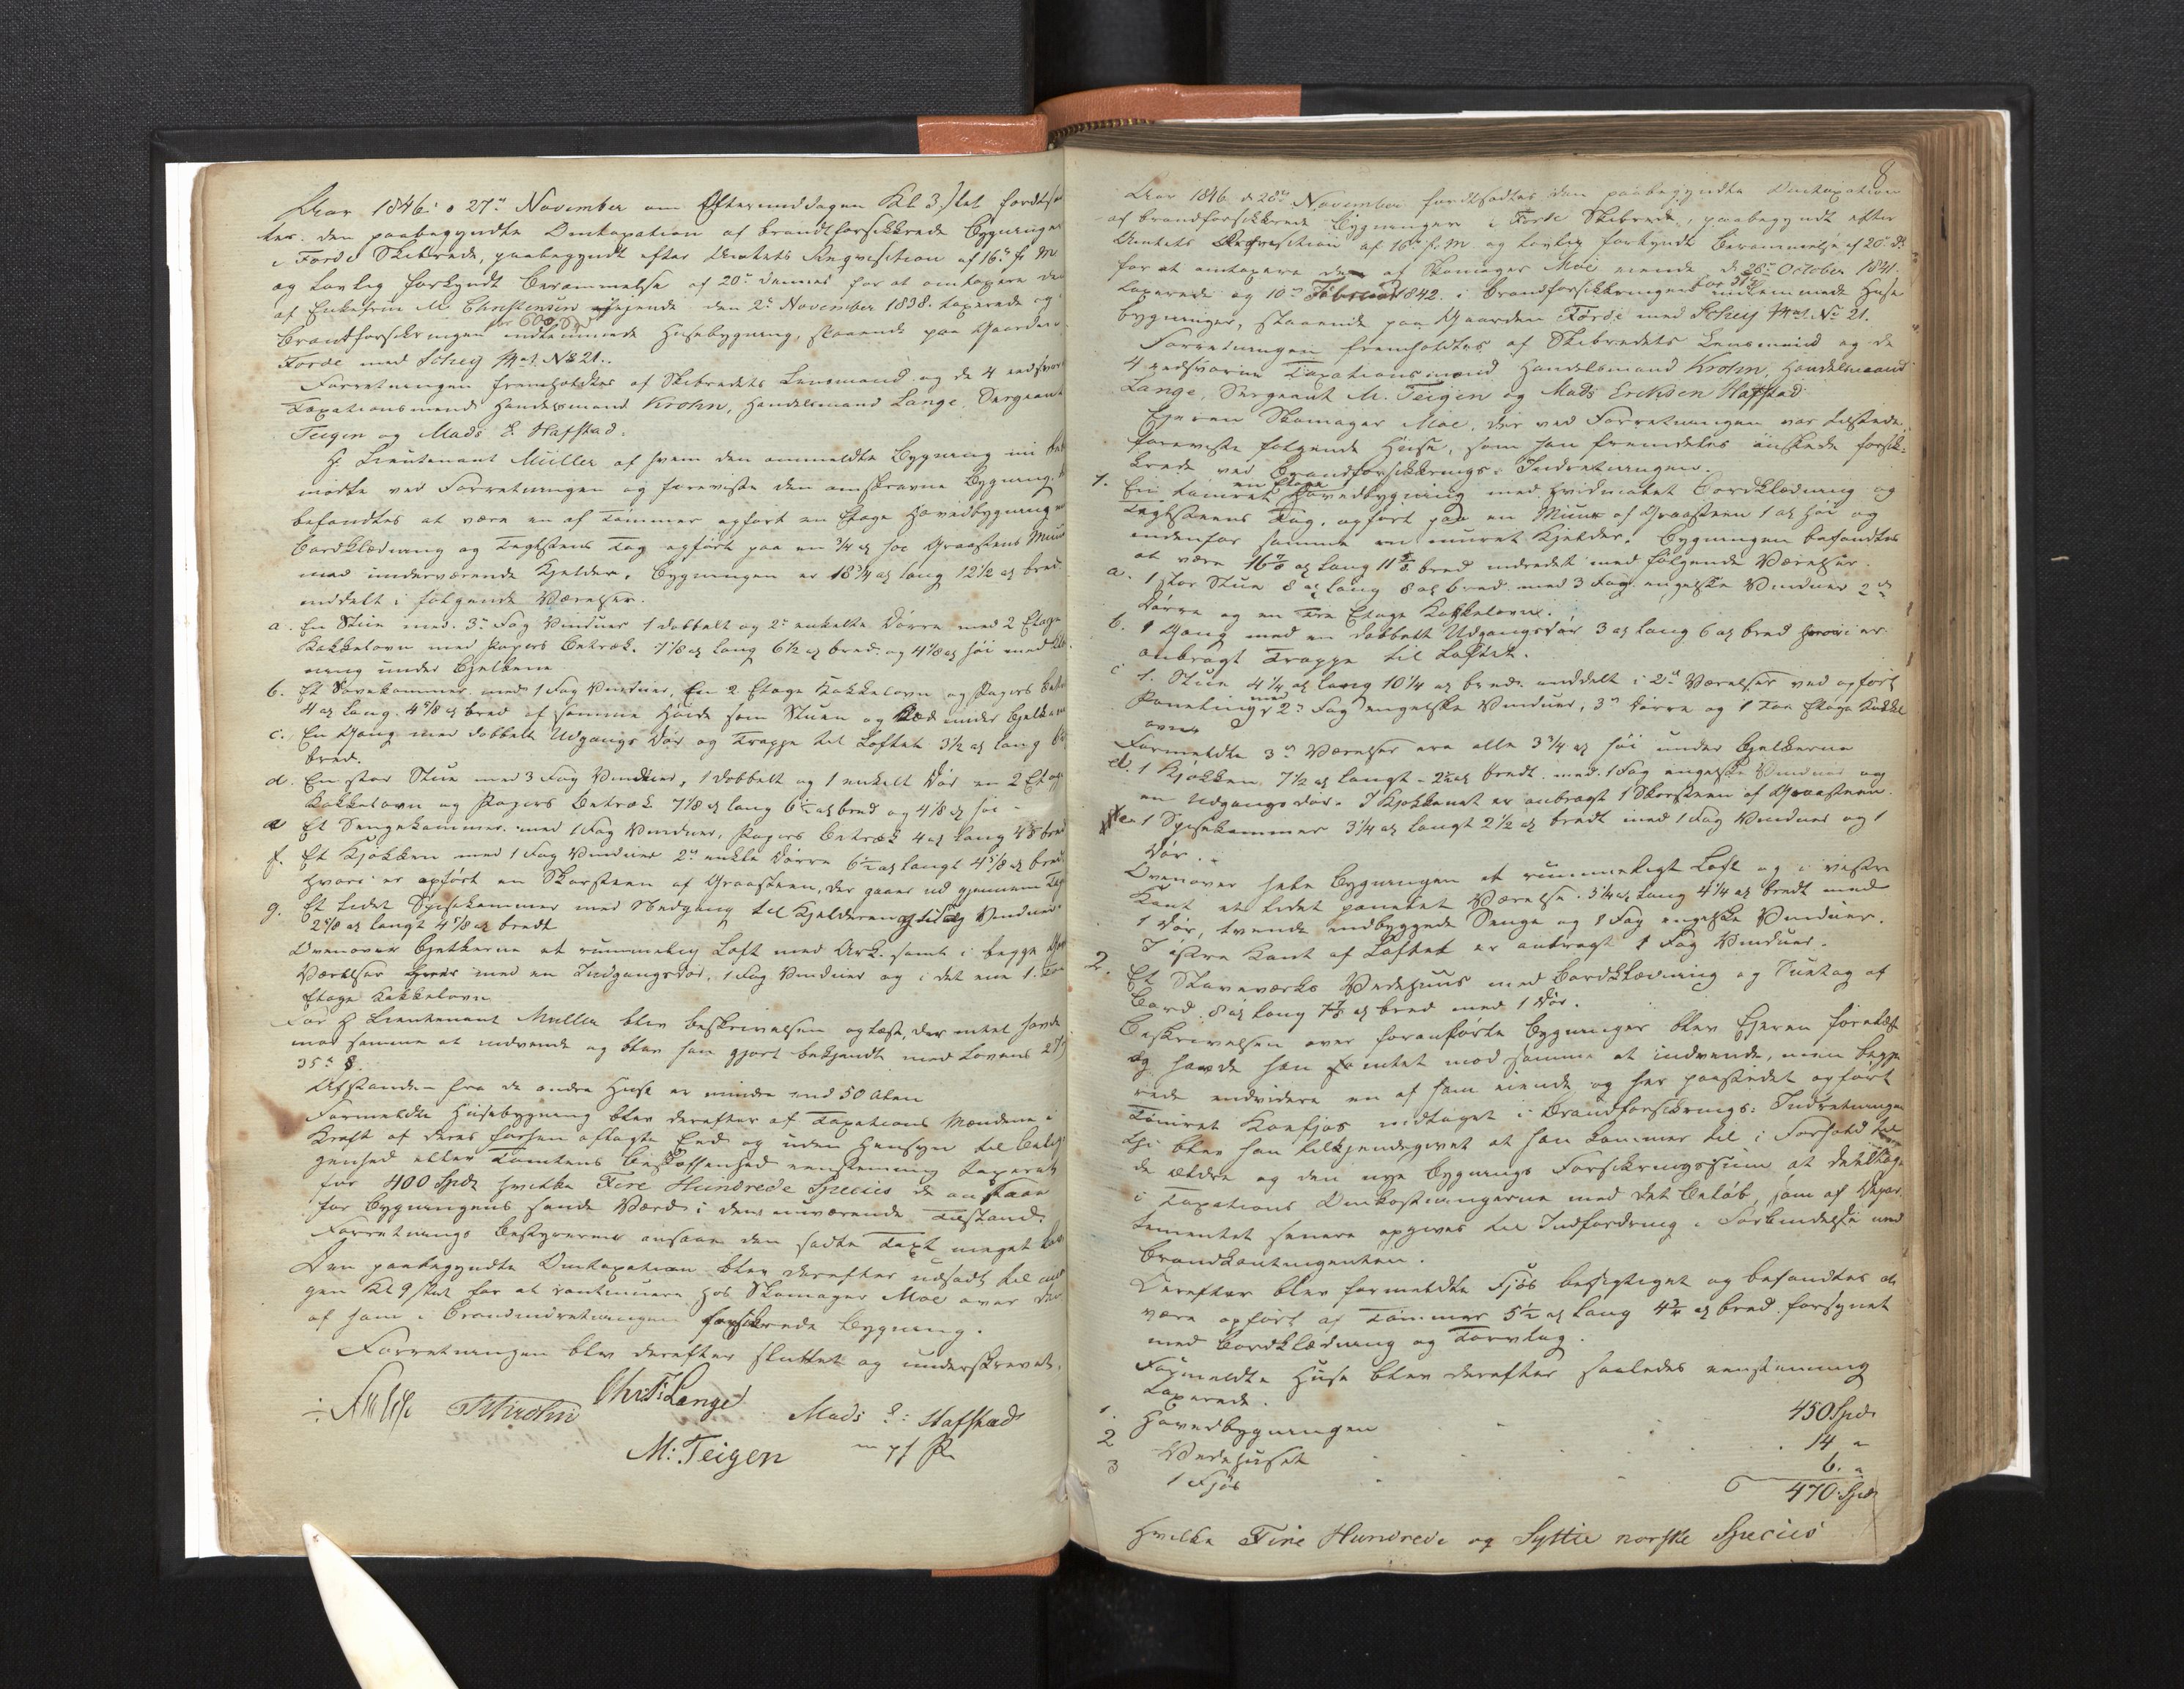 Aar 1846 d 27de November om Eftermiddagen Kl 3 slet fordtsat
tes den paabegyndte Omtaxation af brandforsikkrede Bygninger
i Förde Skibrede, paabegyndt efter Amtets Reqvisition af 16de f. M
og lovlig forkyndt Berammelse af 20de dennes for at omtaxere den
af Enkefrue M. Christensen eiende den 2de November 1838 taxerede og
for 600 Spd
Brandforsikringen indlemmede Huusebygning, staaende paa Gaarden
Förde med Schey Mat. No 21.
Forretningen fremholdtes af Skibredets Lensmand og de 4 eedsvorne
Taxationsmænd Handelsmand Krohn, Handelsmand Lange, Sergeant
Teigen og Mads E. Hafstad.
Hr Lieutenant Müller af hvem den ommeldte Bygning nu
mödte ved Forretningen og foreviste den omskrevne Bygning
befandtes at være en af Tömmer opfört en Etage Hovedbygning
Bordklædning og Teglsteens Tag opfört paa en 3/4 al höi Graasteens Muur
med underværende Kjelder. Bygningen er 18 3/4 al lang 12 1/2 al bred
inddelt i fölgende Værelser.
a. En Stue med 3de Fag Vinduer 1 dobbelt og 2de enkelte Dörre med 2 Etage
Kakkelovn med Papirs Betræk. 7 1/8 al lang 6 1/2 al bred og 4 1/8 al höi med
ning under Bjelkene
b. Et Sovekammer med 1 Fag Vinduer, En 2 Etage Kakkelovn og Papirs
4 al lang 4 5/8 al bred af samme Höide som Stuen og under Bjelkerne
c. En Gang med dobbelt Udgangs Dör og Trappe til Loftet 3 1/2 al lang
bred.
d. En stor Stue med 3 Fag Vinduer, 1 dobbelt og 1 enkelt Dör en 2 Etage
Kakkelovn og Papirs Betræk 7 1/8 al lang 6 1/2 al bred og 4 1/8 al höi
e Et Sengekammer med 1 Fag Vinduer, Papirs Betræk 4 al lang 4 5/8 bred
f. Et Kjökken med 1 Fag Vinduer 2de enkle Dörre 6 1/2 al langt 4 5/8 al bredt
hvori er opfört en Skorsteen af Graasteen, der gaaer ud gjennem Taget
g. Et lidet Spisekammer med Nedgang til Kjelderen og Vinduer
2 5/8 al langt 4 5/8 al bredt
Ovenover Bjelkerne et rummelig Loft med Ark samt i begge
Værelser med en Indgangsdör, 1 Fag Vinduer og i det ene 1. To
Etage Kakkelovn
For Hr Lieutenant Müller blev beskrivelsen oplæst, der intet havde
mod samme at indvende og blev han gjort bekjendt med Lovens 27
35te §.
Afstanden fra de andre Huse er mindre end 50 Alen
Formeldte Huusebygning blev derefter af Taxations Mændene i
Kraft af deres forhen aflagte Eed og uden Hensyn til Belig-
genhed eller Tomtens Beskaffenhed eenstemmig taxeret
for 400 Spdr hvilke Fire Hundrede Species de ansaae
for Bygningens sande Værd i dens nuværende Tilstand.
Forretnings Bestyreren ansaae den satte Taxt meget
Den paabegyndte Omtaxation blev derefter udsadt til
gen Kl 9 slet for at continuere hos Skomager Moe over den
af ham i Brandindretningen forsikrede Bygning.
Forretningen blev derefter sluttet og underskrevet.
Krohn Chr. F: Lange Mads E: Hafstad
M: Teigen m p P
8
Aar 1846 d 28de November fordtsadtes den paabegyndte Omtaxation
af brandforsikkrede Bygninger i Förde Skibrede, paabegyndt efter
Amtets Reqvisition af 16de f. M og lovlig forkyndt Berammelse af 20de ds.
for at omtaxere den af Skomager Moe eiende d. 28de October 1841.
taxerede og 10de Februar 1842. i Brandforsikkringen indlemmede Huse
bygninger, staaende paa Gaarden Förde med Schey Mat. No 21.
Forretningen fremholdtes af Skibredets Lensmand og de
4 eedsvorne Taxationsmænd Handelsmand Krohn, Handelsmand
Lange, Sergeant M. Teigen og Mads Ericksen Hafstad
Eieren Skomager Moe, der ved Forretningen var tilstede,
foreviste fölgende Huse, som han fremdeles önskede forsik-
krede ved Brandforsikkrings-Indretningen.
en Etage
1. En tömret Hovedbygning med hvidmalet Bordklædning og
Teglsteens Tag, opfört paa en Muur af Graasteen 1 al höi og
indenfor samme en muret Kjelder. Bygningen befandtes
at være 16 7/8 al lang 11 bred indredet med fölgende Værelser.
a. 1 stor Stue 8 al lang 8 al bred med 3 Fag engelske Vinduer 2de
Dörre og en tre Etage Kakkelovn.
b. 1 Gang med en dobbelt Udgangsdör 3 al lang 6 al bred hvori er
anbragt Trappe til Loftet.
c 1. Stue 4 1/4 al lang 10 1/4 al bred inddelt i 2de Værelser ved opfört
med
Panelings 2de Fag engelske Vinduer, 3de Dörre og 1 Toe Etage Kakkel
ovn
Formeldte 3de Værelser ere alle 3 3/4 al höi under Bjelkerne
d. 1 Kjökken 7 1/2 al langt - 2 1/2 al bredt med 1 Fag engelske Vinduer og
en Udgangs Dör. I Kjökkenet er anbragt 1 Skorsteen af Graasteen
e 1 Spisekammer 3 1/4 al langt 2 1/2 al bredt med 1 Fag Vinduer og 1
Dör.
Ovenover hele Bygningen et rummeligt Loft og i vestre
Kant et lidet panelet Værelse. 3 1/4 al lang 4 1/4 al bredt med
1 Dör, tvende indbyggede Senge og 1 Fag engelske Vinduer.
I östre Kant af Loftet er anbragt 1 Fag Vinduer.
2. Et Staveværks Vedehuus med Bordklædning og Suetag af
Bord. 8 al lang 7 al bred med 1 Dör.
Beskrivelsen over foranförte Bygninger blev Eieren forelæst
og havde han intet mod samme at indvende, men begje
rede endvidere en af ham eiende og her paastedet opfört
Tömret Koefjös indtaget i Brandforsikrings-Indretningen
Thi blev han tilkjendegivet at han kommer til i Forhold til
de ældre og den nye Bygnings Forsikringssum at deeltage
i Taxations Omkostningerne med det Belöb, som af Depar
tementet senere opgives til Indfordring i Forbindelse med
Brandkontingenten.
Derefter blev formeldte Fjös besigtiget og befandtes at
være opfört af Tömmer 5 1/2 al lang 4 3/4 al bred forsynet
med Bordklædning og Torvtag.
Formeldte Huse blev derefter saaledes eenstemmig
taxerede.
1. Hovedbygningen 450 Spdr
2 Vedehuset 14 "
3 1 Fjös 6. "
470 Spdr
hvilke Fire Hundrede og Syttie norske Species